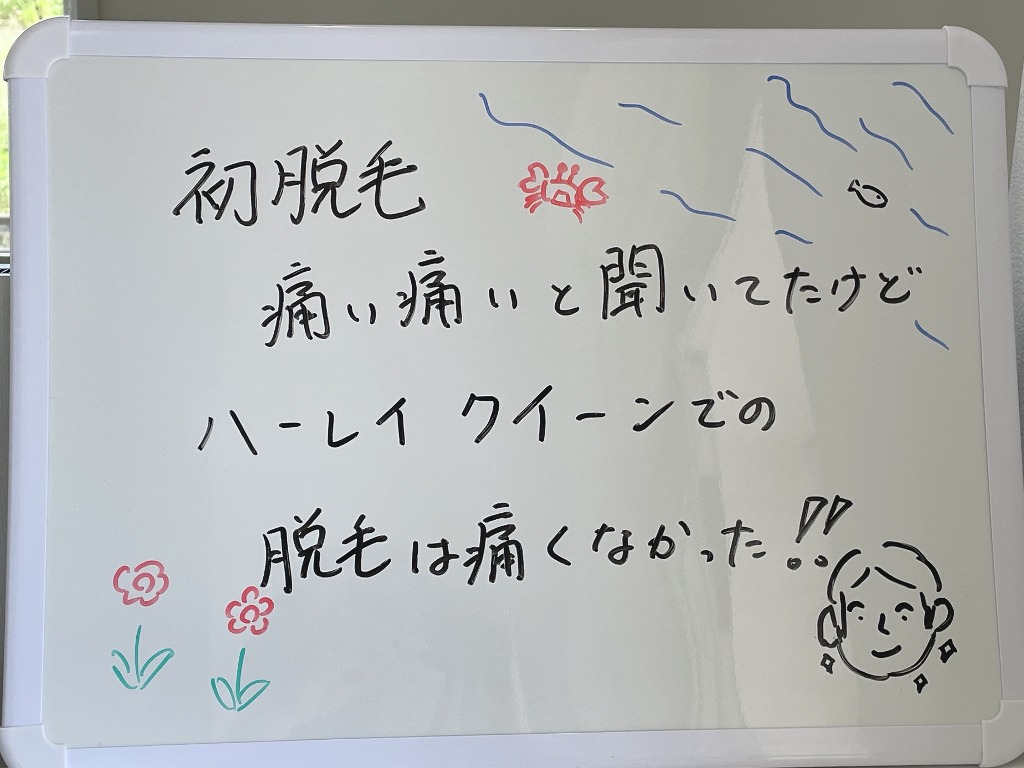 初脱毛
痛い痛いと聞いてたけど
ハーレイ クイーンでの
脱毛は痛くなかった!!